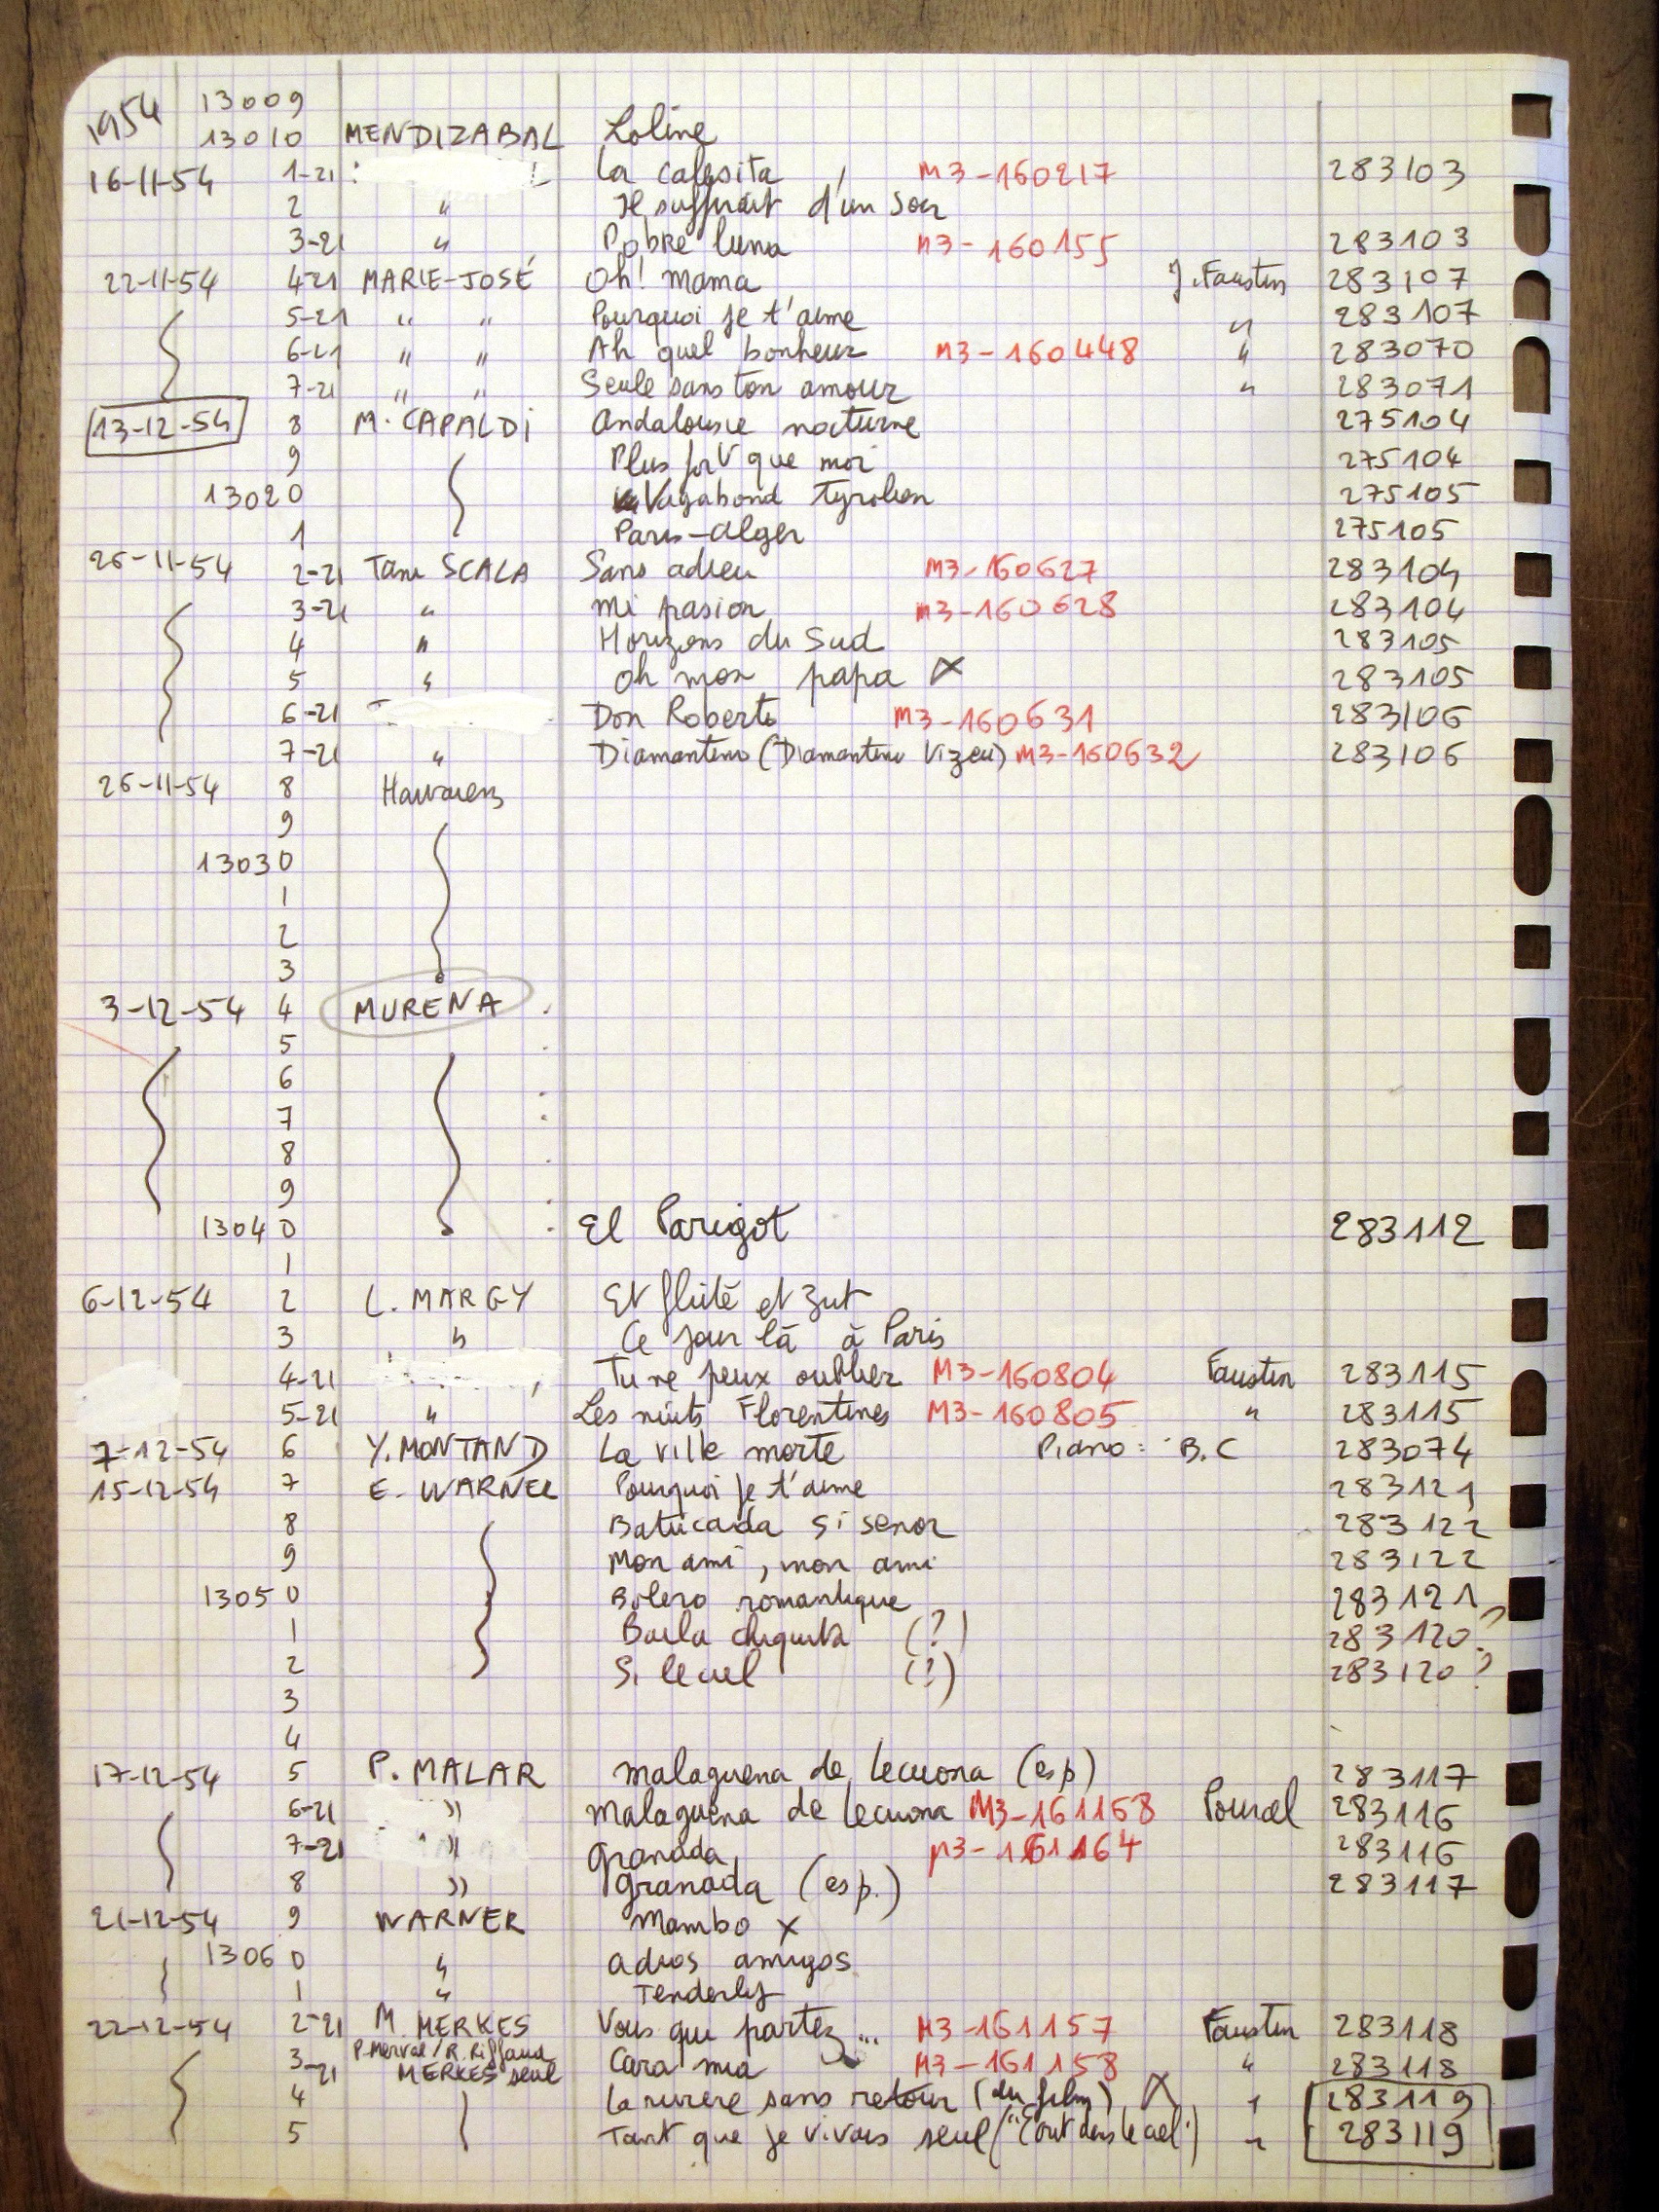 1954 13009
13010 MENDIZABAL Loline
16-11-54 1-21 La calesita M3-160217 283103
2 " Il suffirait d'un soir
3-21 " Pobre luna M3-160155 283103
22-11-54 4-21 MARIE-JOSÉ Oh! mama J. Faustin 283107
5-21 " " Pourquoi je t'aime " 283107
6-21 " " Ah quel bonheur M3-160448 " 283070
7-21 " " Seule sans ton amour " 283071
13-12-54 8 M. CAPALDI Andalousie nocturne 275104
9 Plus fort que moi 275104
13020 Vagabond Tyrolien 275105
1 Paris-Alger 275105
26-11-54 2-21 Tani SCALA Sans adieu M3-160627 283104
3-21 " Mi pasion M3-160628 283104
4 " Horizons du Sud 283105
5 " Oh mon papa X 283105
6-21 Don Roberto M3-160631 283106
7-21 " Diamantino (Diamantino Vizeu) M3-160632 283106
26-11-54 8 Hawaiens
9
13030
1
2
3
3-12-54 4 MURENA
5
6
7
8
9
13040 El Parigot 283112
1
6-12-54 2 L. MARGY Et flûte et zut
3 " Ce jour là à Paris
4-21 Tu ne peux oublier M3-160804 Faustin 283115
5-21 " Les nuits Florentines M3-160805 " 283115
7-12-54 6 Y. MONTAND La ville morte Piano: B.C 283074
15-12-54 7 E. WARNER Pourquoi je t'aime 283121
8 Batucada si senor 283122
9 Mon ami, mon ami 283122
13050 Bolero romantique 283121
1 Baila chiquita (?) 283120?
2 Si le ciel (?) 283120?
3
4
17-12-54 5 P. MALAR Malaguena de Lecuona (esp) 283117
6-21 " Malaguena de Lecuona M3-161168 Pourcel 283116
7-21 " Granada M3-161164 283116
8 " Granada (esp.) 283117
21-12-54 9 WARNER Mambo X
13060 " Adios amigos
1 " Tenderly
22-12-54 2-21 M. MERKES Vous qui partez... M3-161157 Faustin 283118
P. Merval / R. Riffaud
3-21 MERKES seul Cara mia M3-161158 " 283118
4 La rivière sans retour (du film) X " 283119
5 Tant que je vivrais seul ("Ecrit dans le ciel") " 283119